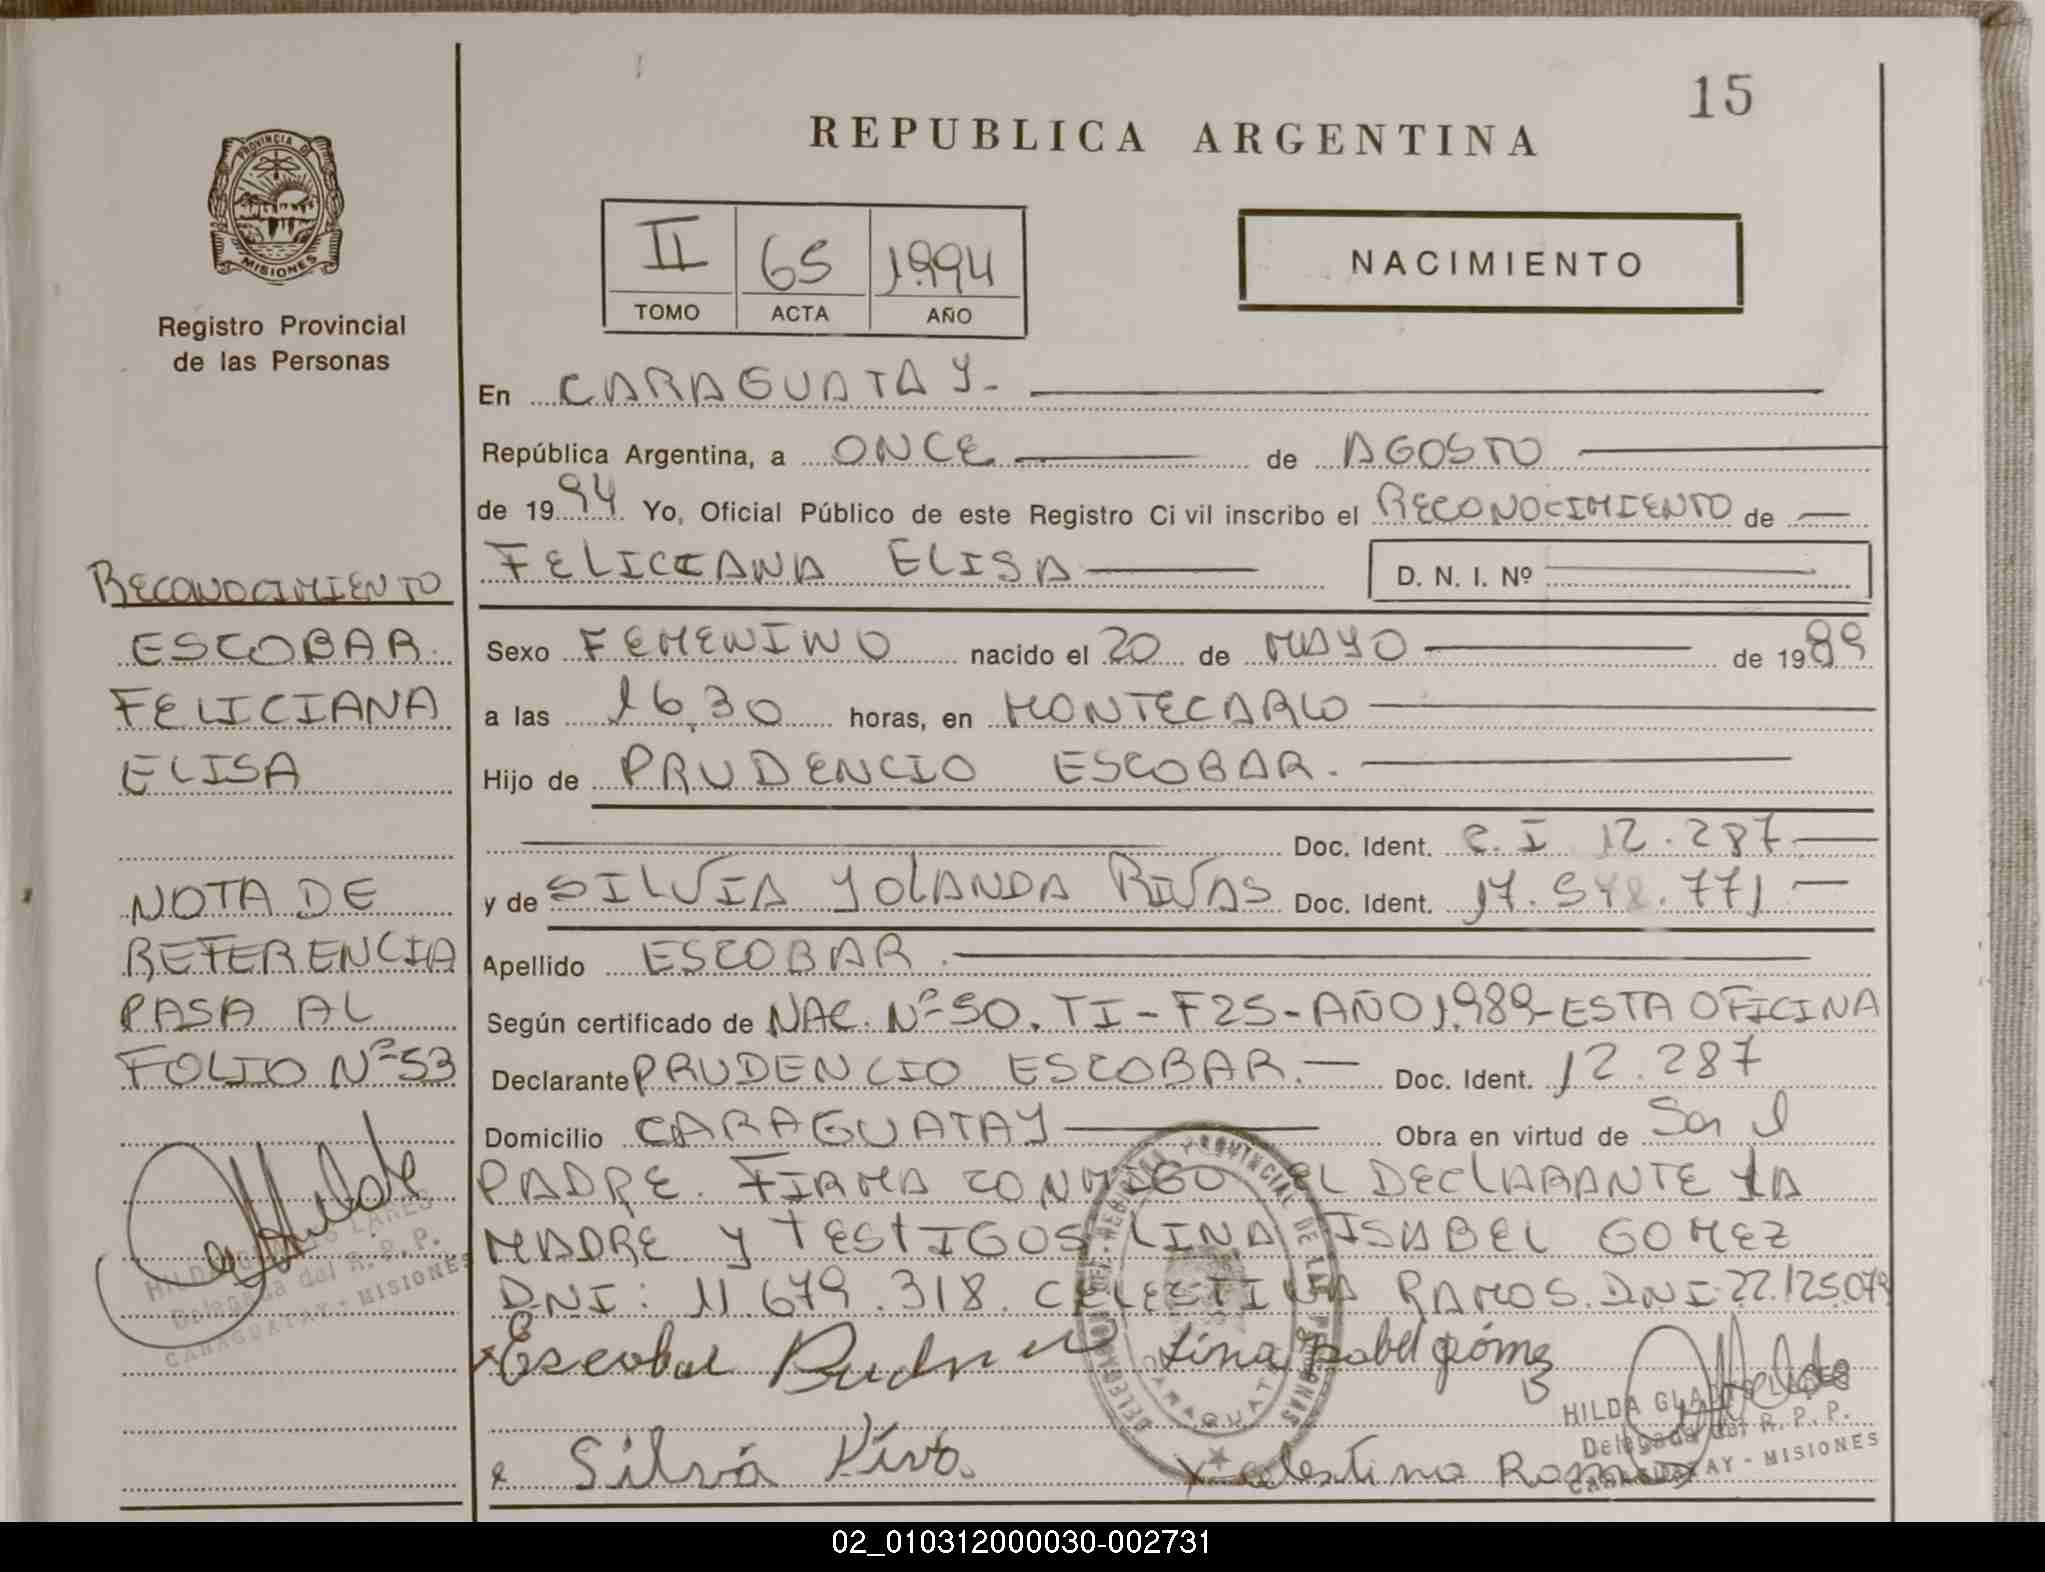 15
REPUBLICA ARGENTINA
PROVINCIA DE
MISIONES
Registro Provincial
de las Personas
II 65 1994
TOMO ACTA AÑO
NACIMIENTO
En CARAGUATAY.
República Argentina, a ONCE de AGOSTO
de 1994 Yo, Oficial Público de este Registro Civil inscribo el RECONOCIMIENTO de
FELICIANA ELISA D. N. I. Nº
Sexo FEMENINO nacido el 20 de MAYO de 1989
a las 16,30 horas, en MONTECARLO
Hijo de PRUDENCIO ESCOBAR.
Doc. Ident. C.I 12.287
y de SILVIA YOLANDA RIVAS Doc. Ident. 17.548.771
Apellido ESCOBAR.
Según certificado de NAC. Nº 50. TI - F25 - AÑO 1.989 - ESTA OFICINA
Declarante PRUDENCIO ESCOBAR. Doc. Ident. 12.287
Domicilio CARAGUATAY Obra en virtud de Ser el
PADRE. FIRMA CONMIGO EL DECLARANTE LA
MADRE Y TESTIGOS LINA ISABEL GOMEZ
DNI: 11.679.318. CELESTINA RAMOS. DNI 22.125.079
Escobar Lina Isabel gómez
HILDA
Delegada del R. P. P.
CARAGUATAY - MISIONES
Silvia Celestina Ramos
RECONOCIMIENTO
ESCOBAR.
FELICIANA
ELISA
NOTA DE
REFERENCIA
PASA AL
FOLIO Nº 53
HILDA LARES
Delegada del R. P. P.
CARAGUATAY - MISIONES
02_010312000030-002731